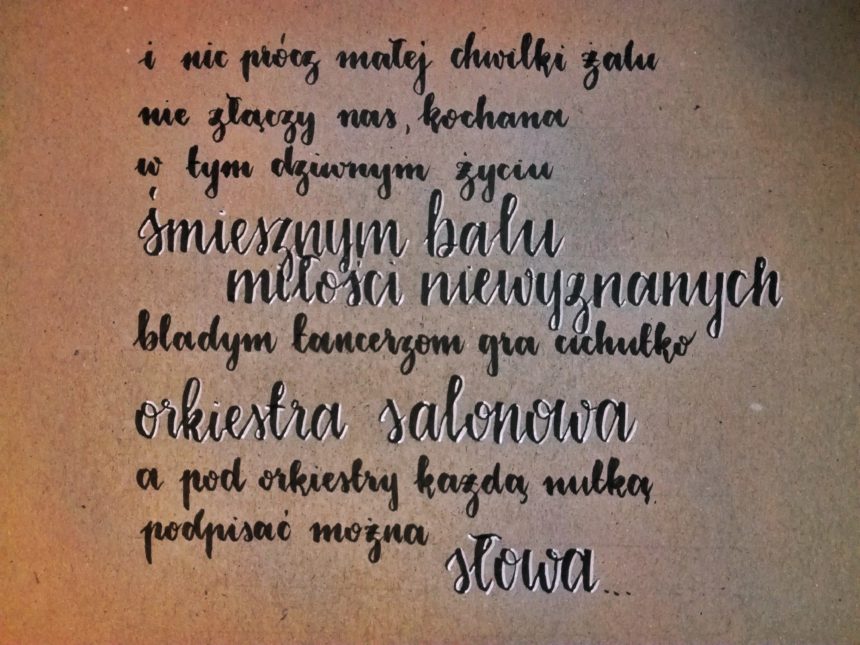 i nic prócz małej chwilki żalu
nie złączy nas, kochana
w tym dziwnym życiu
śmiesznym balu
miłości niewyznanych
bladym tancerzom gra cichutko
orkiestra salonowa
a pod orkiestry każdą nutką
podpisać można
słowa...